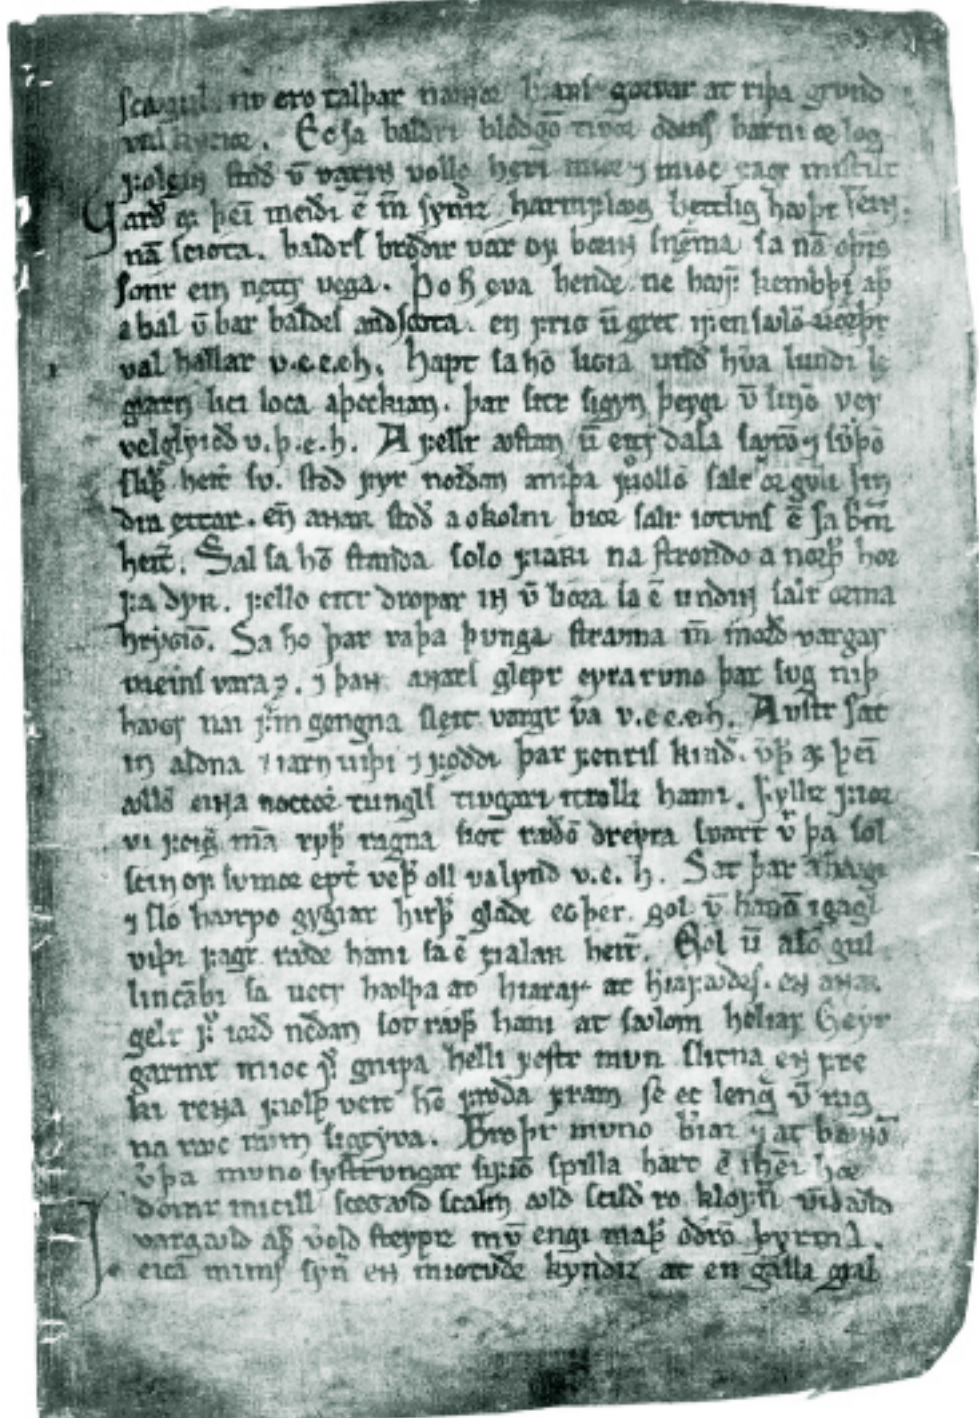 scogul. nv ero talþar naɴoꝛ herianſ goꝛvar at riþa grvnd
valkyrioꝛ. Ec ſa baldri blodgō tivoꝛ odinſ barni oꝛ log
folgin ſtod v̄ vaxiɴ vollo hęri mioꝛ ⁊ mioc fagr miſtilt
Varð af þeī meiði ē m̄ ſyndiz harmflꜹg hęttlig hꜹþr
nā ſciota. baldrſ broðir var of boriɴ ſnēma ſa nā oþins
ſonr ein nęttr vega. Þo h̄ ęva hendr ne hꜹfuþ kembþi aþ
a bal v̄ bar baldrſ andſcota. en frig v̄ gret i fenſꜹlō
val hallar v.e.e.h. Hapt ſa hō ligia undir hv̄a lundi
giarn lici loca aþeckian. þar ſitr ſigyn þeygi v̄ ſinō ver
vel glyioð v.þ.e.h. A fellr ꜹſtan v̄ eitr dala ſꜹxō ⁊ ſv̄þō
ſliþr heit̄ ſv. ſtod fyr norðan aniþa vollō ſalr oꝛ gvlli ſin
dra ęttar. en aɴaʀ ſtoð a okolni bioꝛ ſalr iotunſ ē ſa brim̄
heit̄. Sal ſa hō ſtanda ſolo fiaʀi na ſtrondo a norþr hor
fa dyʀ. fello eitr dropar iɴ v̄ lióra ſa ē undiɴ ſalr oꝛma
hryɢiō. Sa hō þar vaþa þunga ſtrꜹma m̄ moꝛð vargar
meinſ vara. ⁊ þaɴ aɴarſ glepr eyra runo þar ſvg niþ
hꜹɢr nai fram gengna ſleit vargr v̄a v.e.e.e.h. Auſtr ſat
in aldna i iarnviþi ⁊ fǫddi þar fenriſ kindir v̄þr af þeī
ꜹllō eiɴa noccoꝛ tungls tivgari i trollz hami. Fylliz fioꝛ
vi feigra m̄a ryþr ragna ſiot rꜹdō dreyra ſvart v̄ þa ſol
ſcin of ſumoꝛ ept̄ veþr oll valynd v.e.h. Sat þar a hꜹgi
⁊ ſlo hꜹrpo gygiar hirþir glaðr ecþer. gol v̄ hanō i gagl
viþi fagr rꜹðr hani ſa ē fialaʀ heit̄. Gol v̄ aſō gul
lincābi ſa uecr hꜹlþa at hiarar at heriafꜹdrſ. en aɴaʀ
gelr f̄ ioꝛð neðan ſot rꜹþr hani at ſꜹlom heliar Geyr
garmr mioc f̄ gnipa helli feſtr mun ſlitna en fre
ki reɴa fiolþ veit hō froða fram ſe ec lengra v̄ rag
na rꜹc rꜹm ſigtyva. Brǫþr muno beriaz ⁊ at bꜹnō
v̄þa muno ſyſtrungar ſifiō ſpilla hart ē i heimi hoꝛ
domr micill ſceɢꜹld ſcalm ꜹld ſcildir ro klofnir vindꜹld
vargꜹld aþr v̄old ſteypiz mv̄ engi maþr ǫdrō þyrma.
Leica mimſ ſynir en miotuðr kyndiz at en galla gial